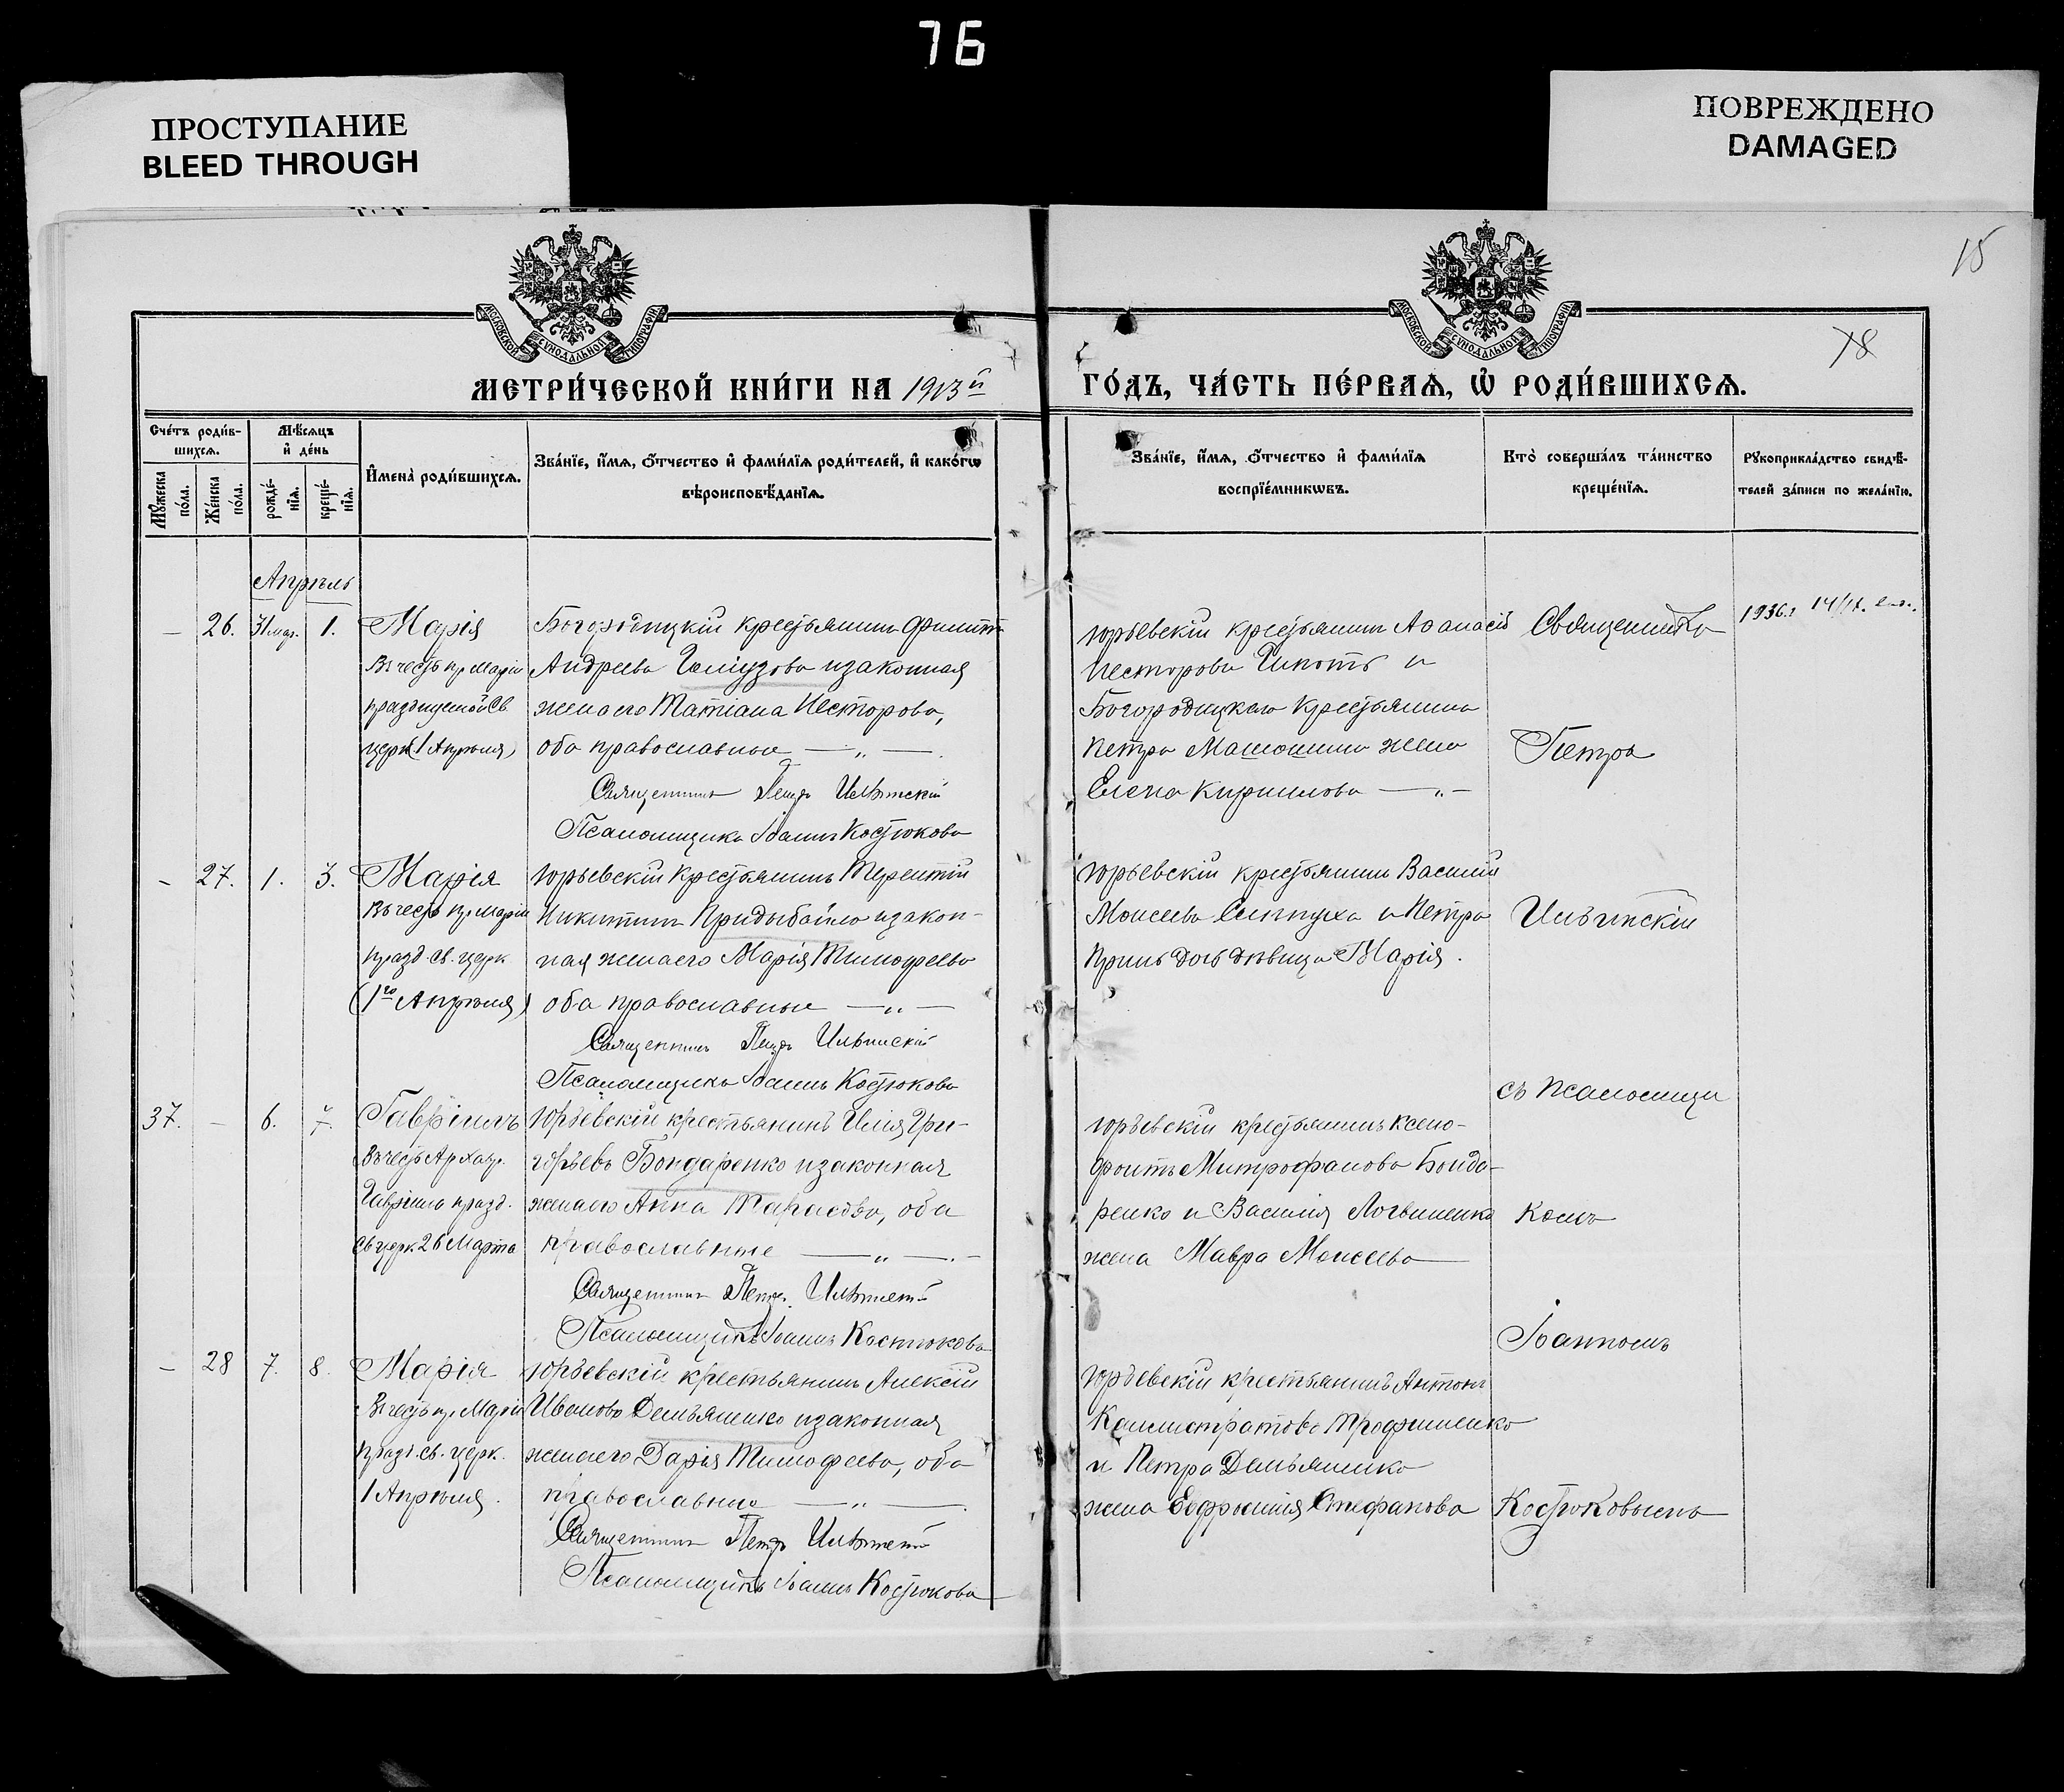 76
ПРОСТУПАНИЕ
BLEED THROUGH
ПОВРЕЖДЕНО
DAMAGED
15
78
МОСКОВСКОЙ СѴНОДАЛЬНОЙ ТИПОГРАФІИ
МОСКОВСКОЙ СѴНОДАЛЬНОЙ ТИПОГРАФІИ
МЕТРИ́ЧЕСКОЙ КНИ́ГИ НА 1913й ГО́ДЪ, ЧА́СТЬ ПЕ́РВАѦ, Ѡ҆ РОДИ́ВШИХСѦ.
Сче́тъ роди́вшихсѧ.
Мꙋ́жеска по́ла.
Же́нска по́ла.
Мѣ́сѧцъ и҆ де́нь
рожде́нїѧ.
креще́нїѧ.
И҆мена̀ роди́вшихсѧ.
Зва́нїе, и҆́мѧ, ѻ҆́тчество и҆ фами́лїѧ роди́телей, и҆ како́гѡ
вѣроисповѣ́данїѧ.
Зва́нїе, и҆́мѧ, ѻ҆́тчество и҆ фами́лїѧ
воспрїе́мникѡвъ.
Кто̀ соверша́лъ та́инство
креще́нїѧ.
Рꙋкоприкла́дство свидѣ́-
телей за́писи по жела́нїю.
Апрѣль
— 26. 31 мар. 1. Марія
Въ честь пр. Маріи
празднуемой Св.
церк. (1 Апрѣля)
Богородицкій крестьянинъ Филиппъ
Андреевъ и законная
жена его Татіана Несторова,
оба православные — „ —.
Священникъ Петръ Ильинскій
Псаломщикъ Іоаннъ Костюковъ
Юрьевскій крестьянинъ Аѳанасій
Несторовъ и
Богородицкаго крестьянина
Петра жена
Елена Кириллова — „ —
1936 г. 14/IX.
— 27. 1. 3. Марія
Въ честь пр. Маріи
празд. св. церк.
(1го Апрѣля)
Юрьевскій крестьянинъ Терентій
Никитинъ Придыбайло и закон-
ная жена его Марія Тимофеева
оба православные — „ —
Священникъ Петръ Ильинскій
Псаломщикъ Іоаннъ Костюковъ
Юрьевскій крестьянинъ Василій
Моисеевъ и Петра
дочь дѣвица Марія.
37. — 6. 7. Гавріилъ
Въ честь Арханг.
Гавріила празд.
св. церк. 26 Марта
Юрьевскій крестьянинъ Илія Гри-
горьевъ Бондаренко и законная
жена его Анна Тарасова, оба
православные — „ —.—
Священникъ Петръ Ильинскій
Псаломщикъ Іоаннъ Костюковъ
Юрьевскій крестьянинъ Ксено-
фонтъ Митрофановъ Бонда-
ренко и Василія Логвиненко
жена Мавра Моисеева
— 28 7. 8. Марія
Въ честь пр. Маріи
празд. св. церк.
1 Апрѣля.
Юрьевскій крестьянинъ Алексій
Ивановъ Демьяненко и законная
жена его Дарія Тимофеева, оба
православные — „ —.
Священникъ Петръ Ильинскій
Псаломщикъ Іоаннъ Костюковъ
Юрьевскій крестьянинъ Антонъ
Каллистратовъ Трофименко
и Петра Демьяненко
жена Евфросинія Стефанова
Священникъ
Петръ
Ильинскій
съ Псаломщи
комъ
Іоанномъ
Костюковымъ